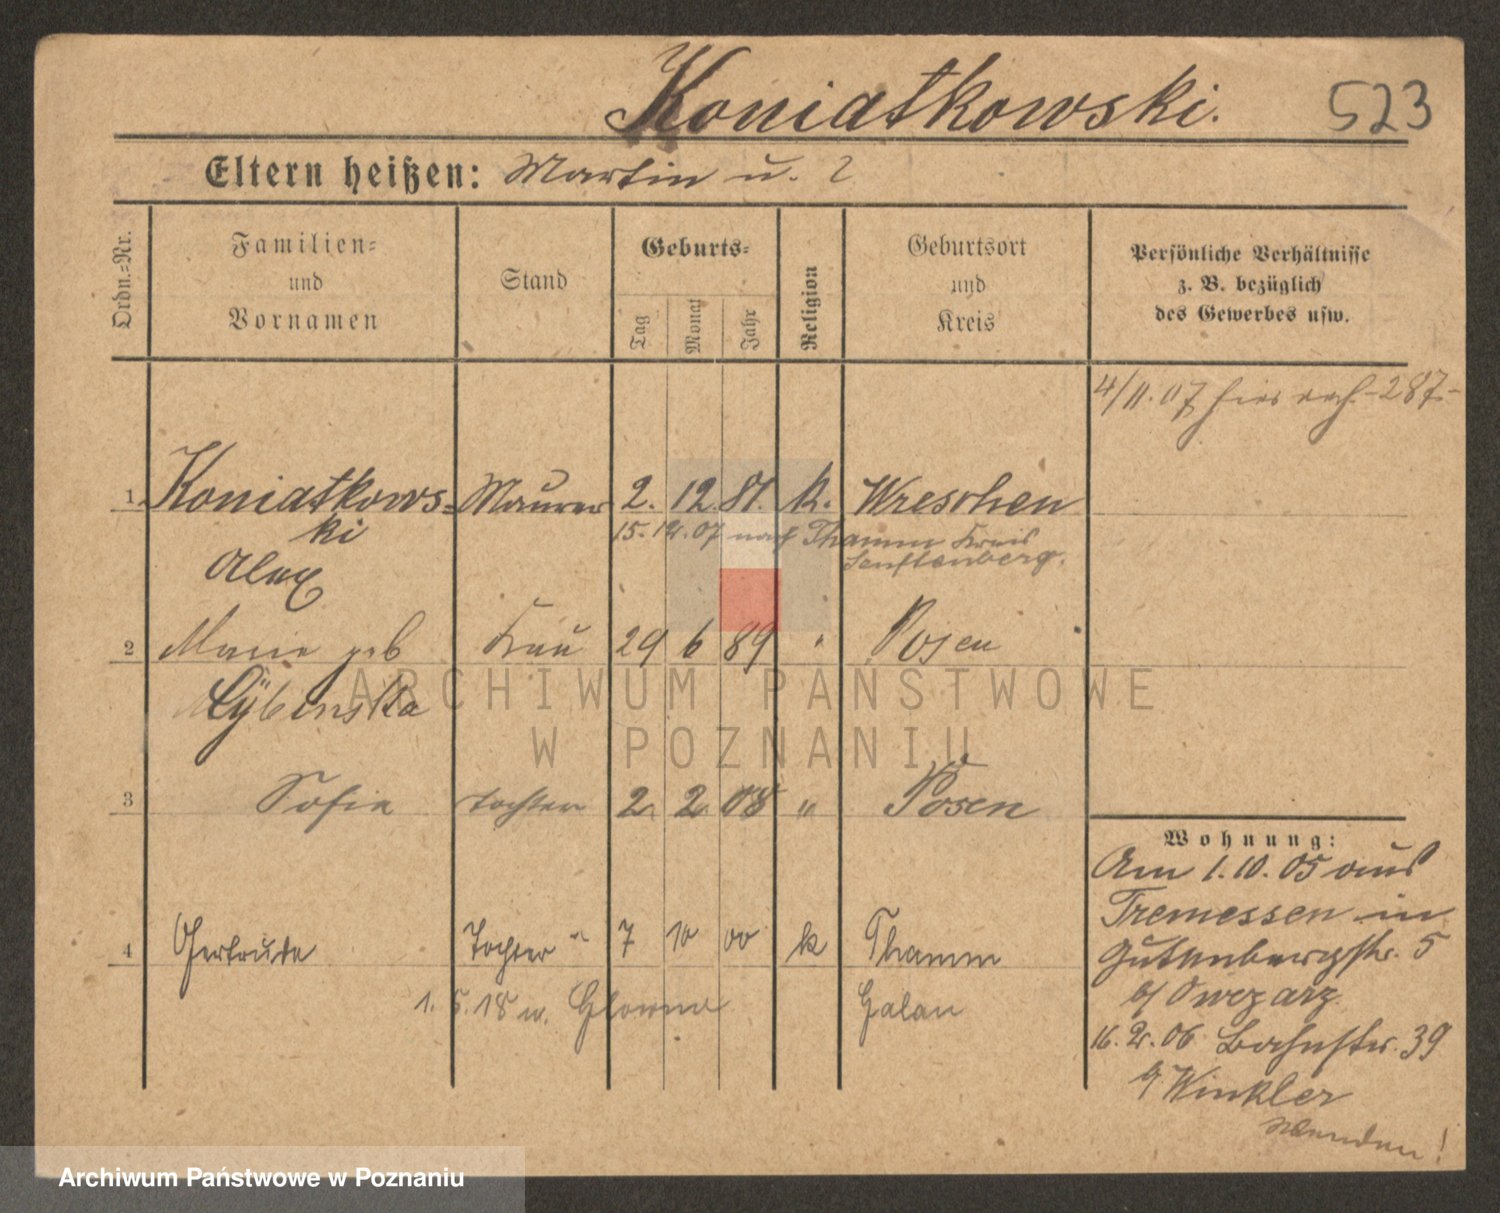 Koniatkowski. 523
Eltern heißen: Martin u. ?
Ordn.=Nr.
Familien=
und
Vornamen
Stand
Geburts=
Tag
Monat
Jahr
Religion
Geburtsort
und
Kreis
Persönliche Verhältnisse
z. B. bezüglich
des Gewerbes usw.
4/11.07 hier 287
1. Koniatkows= Maurer 2. 12. 81. k. Wreschen
ki
15.12.07 nach Thamm Kreis
Senftenberg.
Alex
2 Marie geb Frau 29 6 89 " Posen
Cybinska
3 Sofie Tochter 2. 2. 08 " Posen
4 Gertrude Tochter 7 10 00 k Thamm
1. 5. 18 n. Glowno Galau
Wohnung:
Am 1.10.05 aus
Tremessen in
Gutenbergstr. 5
b/ Owczarz.
16.2.06 Bahnstr. 39
b/ Winkler
Wenden!
ARCHIWUM PAŃSTWOWE
W POZNANIU
Archiwum Państwowe w Poznaniu